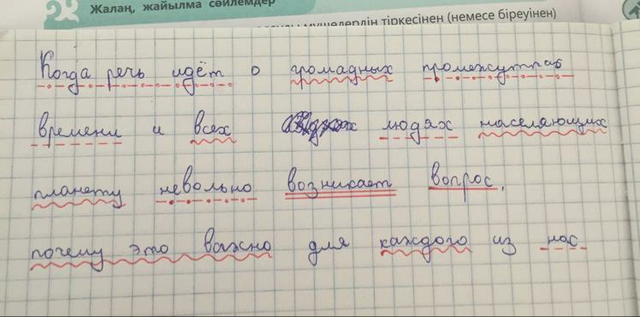 Жалаң, жайылма сөйлемдер
мүшелердің тіркесінен (немесе біреуінен)
Когда речь идёт о громадных промежутков
времени и всех людях населяющих
планету невольно возникает вопрос,
почему это важно для каждого из нас